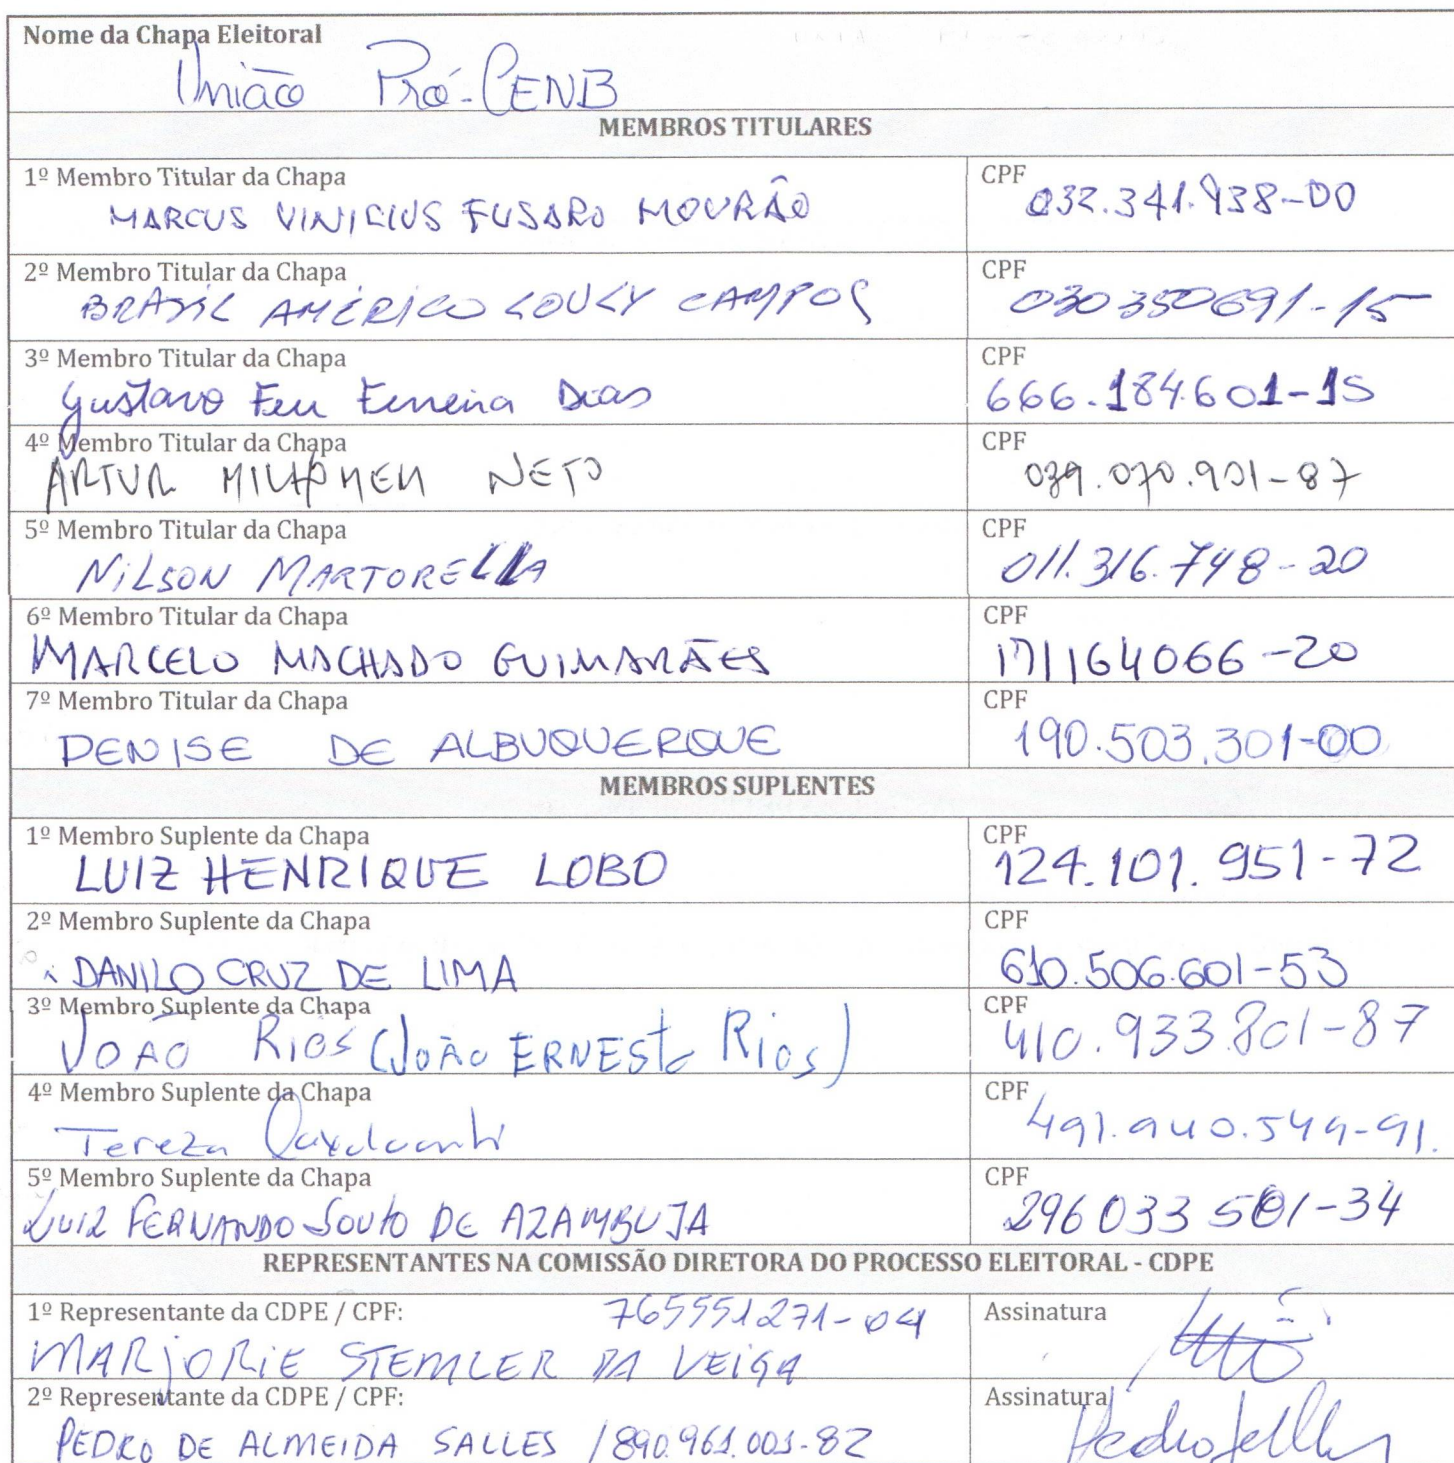 Nome da Chapa Eleitoral
União Pró-CENB
MEMBROS TITULARES
1º Membro Titular da Chapa
MARCUS VINICIUS FUSARO MOURÃO
CPF
032.341.938-00
2º Membro Titular da Chapa
BRASIL AMÉRICO LOULY CAMPOS
CPF
030350691-15
3º Membro Titular da Chapa
Gustavo Feu Ferreira Dias
CPF
666.184.601-15
4º Membro Titular da Chapa
ARTUR MILHOMEM NETO
CPF
039.070.901-87
5º Membro Titular da Chapa
NILSON MARTORELLA
CPF
011.316.748-20
6º Membro Titular da Chapa
MARCELO MACHADO GUIMARÃES
CPF
171164066-20
7º Membro Titular da Chapa
DENISE DE ALBUQUERQUE
CPF
190.503.301-00
MEMBROS SUPLENTES
1º Membro Suplente da Chapa
LUIZ HENRIQUE LOBO
CPF
124.101.951-72
2º Membro Suplente da Chapa
DANILO CRUZ DE LIMA
CPF
610.506.601-53
3º Membro Suplente da Chapa
JOÃO RIOS (JOÃO ERNESTO RIOS)
CPF
410.933.801-87
4º Membro Suplente da Chapa
Tereza Cavalcanti
CPF
491.940.549-91.
5º Membro Suplente da Chapa
LUIZ FERNANDO SOUTO DE AZAMBUJA
CPF
296033501-34
REPRESENTANTES NA COMISSÃO DIRETORA DO PROCESSO ELEITORAL - CDPE
1º Representante da CDPE / CPF: 765551271-04
MARJORIE STEMLER DA VEIGA
Assinatura
2º Representante da CDPE / CPF:
PEDRO DE ALMEIDA SALLES / 890.961.001-82
Assinatura